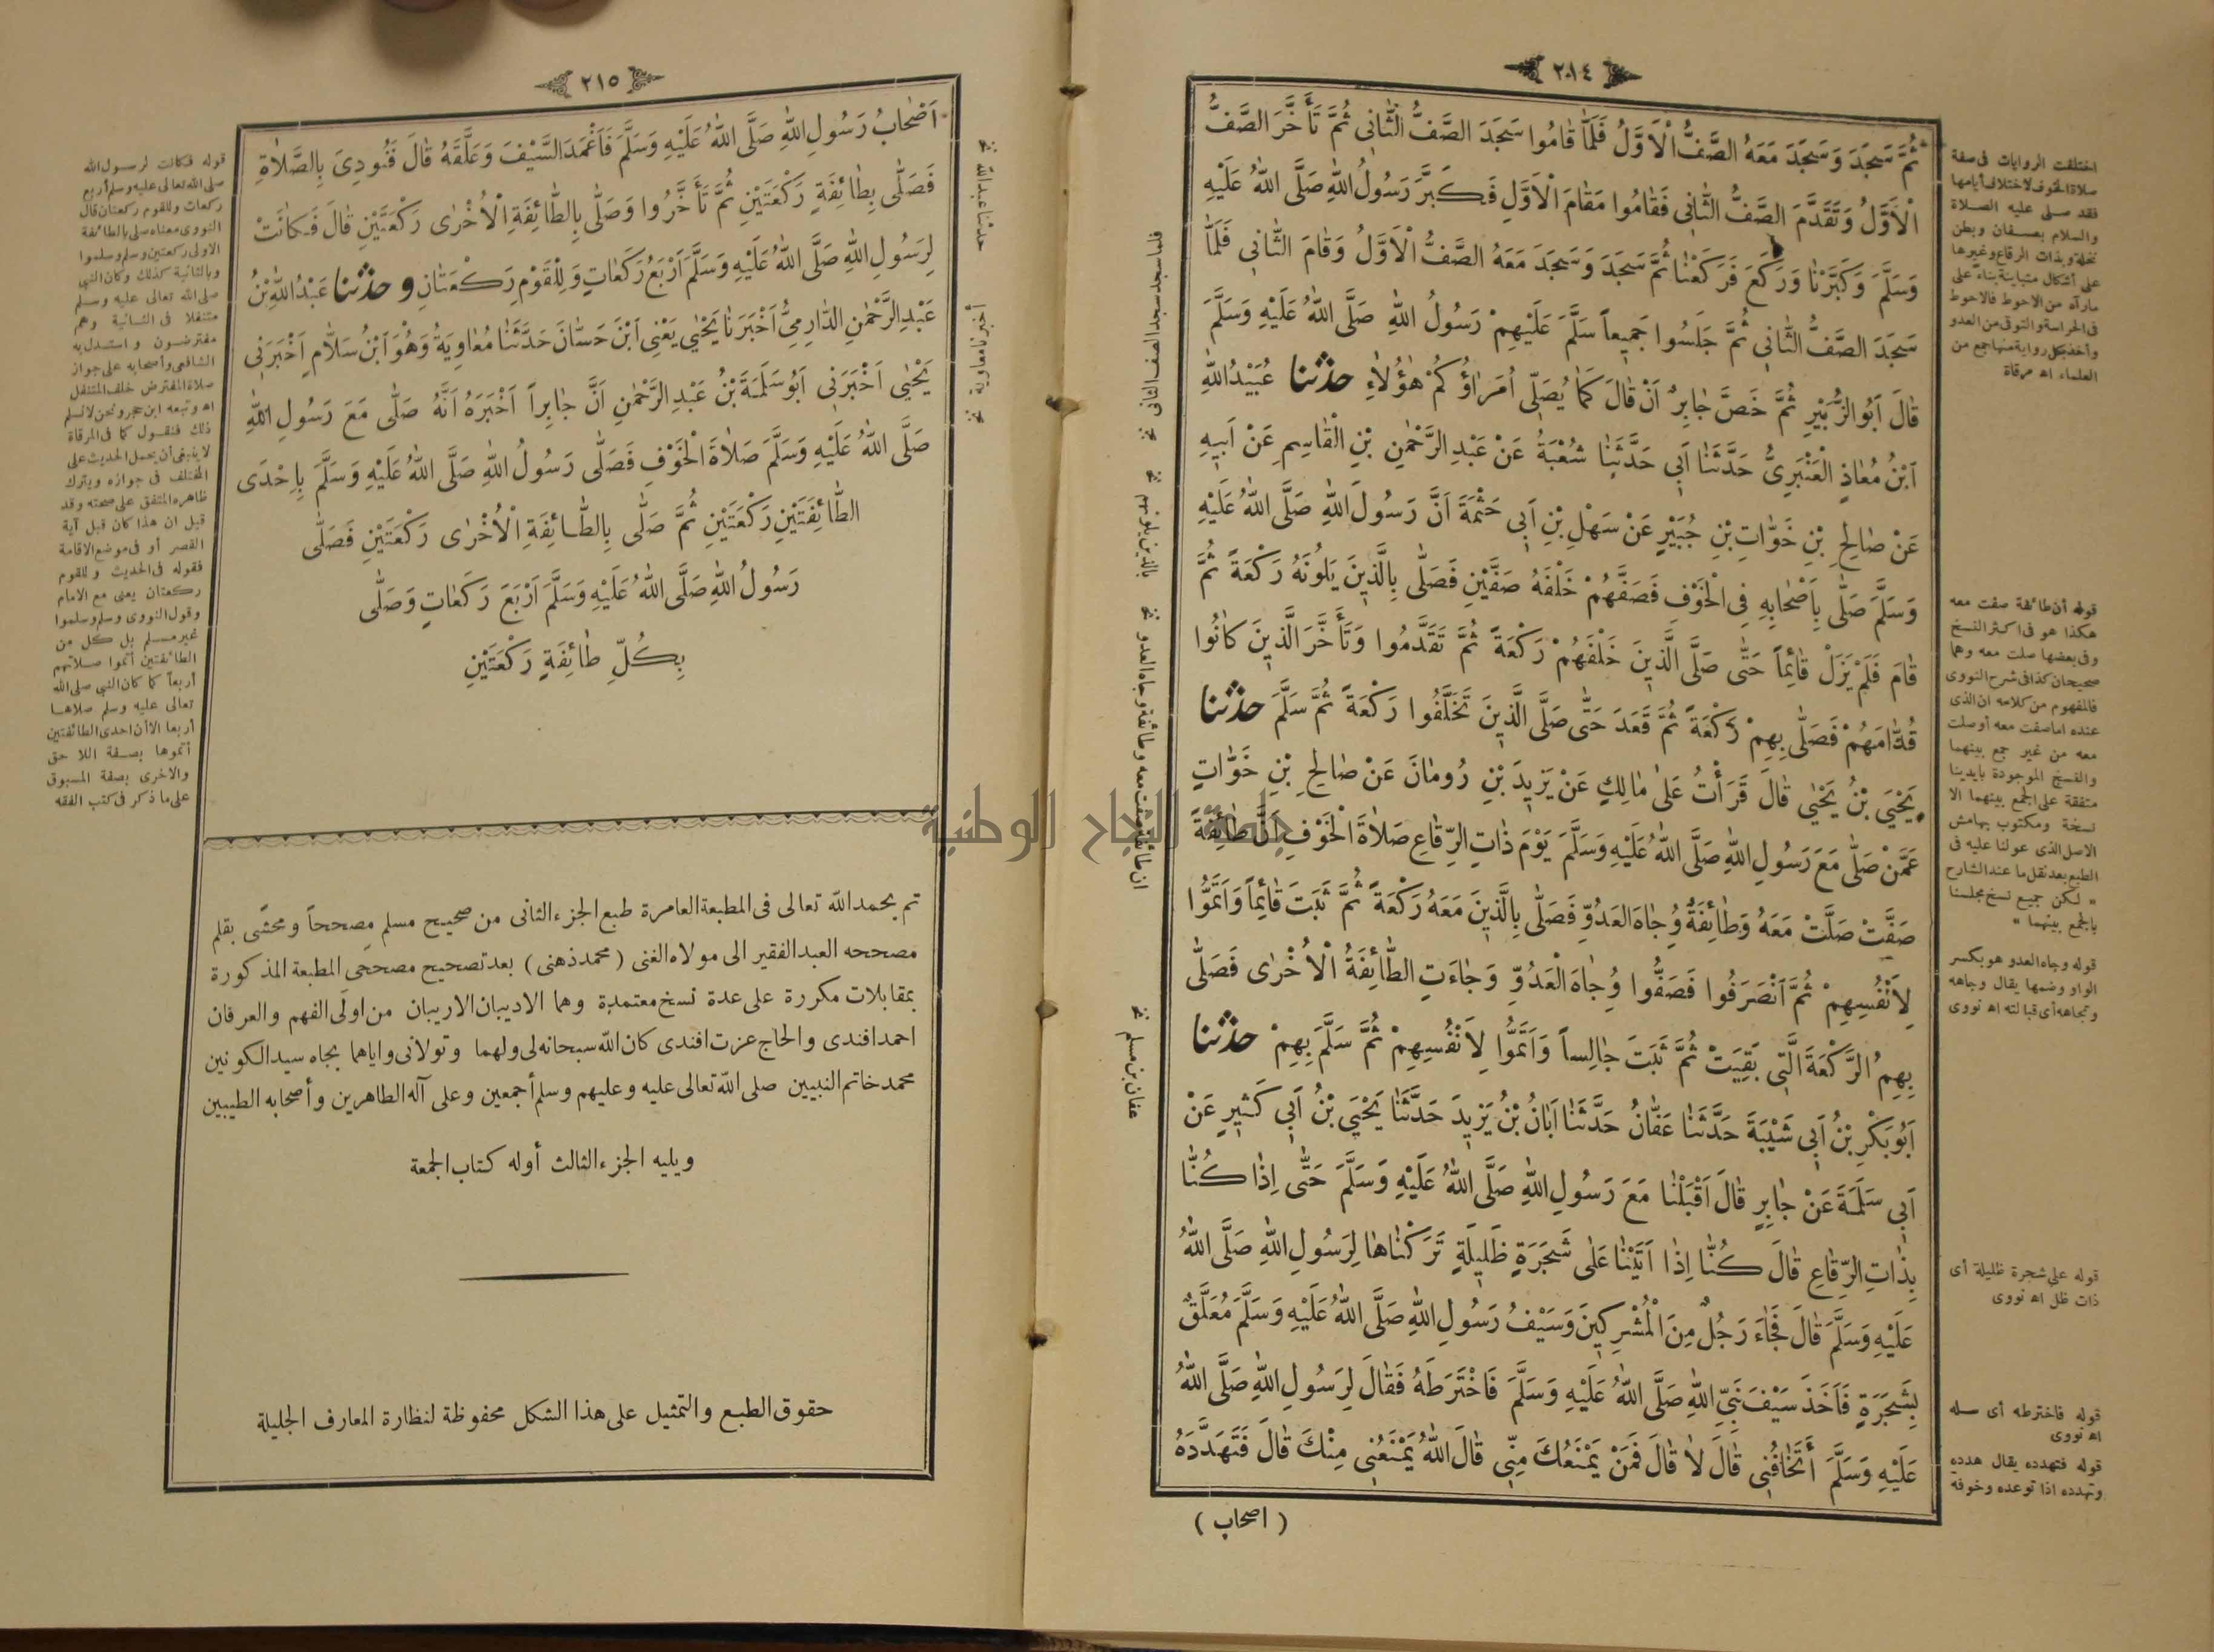 ٢١٤
ثُمَّ سَجَدَ وَسَجَدَ مَعَهُ الصَّفُّ الْاَوَّلُ فَلَمَّا قَامُوا سَجَدَ الصَّفُّ الثَّانِي ثُمَّ تَأَخَّرَ الصَّفُّ
الْاَوَّلُ وَتَقَدَّمَ الصَّفُّ الثَّانِي فَقَامُوا مَقَامَ الْاَوَّلِ فَكَبَّرَ رَسُولُ اللهِ صَلَّى اللهُ عَلَيْهِ
وَسَلَّمَ وَكَبَّرْنَا وَرَكَعَ فَرَكَعْنَا ثُمَّ سَجَدَ وَسَجَدَ مَعَهُ الصَّفُّ الْاَوَّلُ وَقَامَ الثَّانِي فَلَمَّا
سَجَدَ الصَّفُّ الثَّانِي ثُمَّ جَلَسُوا جَمِيعاً سَلَّمَ عَلَيْهِمْ رَسُولُ اللهِ صَلَّى اللهُ عَلَيْهِ وَسَلَّمَ
قَالَ اَبُو الزُّبَيْرِ ثُمَّ خَصَّ جَابِرٌ اَنْ قَالَ كَمَا يُصَلِّي اُمَرَاؤُكُمْ هٰؤُلَاءِ حدثنا عُبَيْدُ اللهِ
ابْنُ مُعَاذٍ الْعَنْبَرِيُّ حَدَّثَنَا اَبِي حَدَّثَنَا شُعْبَةُ عَنْ عَبْدِ الرَّحْمٰنِ بْنِ الْقَاسِمِ عَنْ اَبِيهِ
عَنْ صَالِحِ بْنِ خَوَّاتِ بْنِ جُبَيْرٍ عَنْ سَهْلِ بْنِ اَبِي حَثْمَةَ اَنَّ رَسُولَ اللهِ صَلَّى اللهُ عَلَيْهِ
وَسَلَّمَ صَلَّى بِاَصْحَابِهِ فِي الْخَوْفِ فَصَفَّهُمْ خَلْفَهُ صَفَّيْنِ فَصَلَّى بِالَّذِينَ يَلُونَهُ رَكْعَةً ثُمَّ
قَامَ فَلَمْ يَزَلْ قَائِماً حَتَّى صَلَّى الَّذِينَ خَلْفَهُمْ رَكْعَةً ثُمَّ تَقَدَّمُوا وَتَأَخَّرَ الَّذِينَ كَانُوا
قُدَّامَهُمْ فَصَلَّى بِهِمْ رَكْعَةً ثُمَّ قَعَدَ حَتَّى صَلَّى الَّذِينَ تَخَلَّفُوا رَكْعَةً ثُمَّ سَلَّمَ حدثنا
يَحْيَى بْنُ يَحْيٰى قَالَ قَرَأْتُ عَلٰى مَالِكٍ عَنْ يَزِيدَ بْنِ رُومَانَ عَنْ صَالِحِ بْنِ خَوَّاتٍ
عَمَّنْ صَلَّى مَعَ رَسُولِ اللهِ صَلَّى اللهُ عَلَيْهِ وَسَلَّمَ يَوْمَ ذَاتِ الرِّقَاعِ صَلَاةَ الْخَوْفِ اَنَّ طَائِفَةً
صَفَّتْ صَلَّتْ مَعَهُ وَطَائِفَةٌ وُجَاهَ الْعَدُوِّ فَصَلَّى بِالَّذِينَ مَعَهُ رَكْعَةً ثُمَّ ثَبَتَ قَائِماً وَاَتَمُّوا
لِاَنْفُسِهِمْ ثُمَّ انْصَرَفُوا فَصَفُّوا وُجَاهَ الْعَدُوِّ وَجَاءَتِ الطَّائِفَةُ الْاُخْرٰى فَصَلَّى
بِهِمُ الرَّكْعَةَ الَّتِي بَقِيَتْ ثُمَّ ثَبَتَ جَالِساً وَاَتَمُّوا لِاَنْفُسِهِمْ ثُمَّ سَلَّمَ بِهِمْ حدثنا
اَبُو بَكْرِ بْنُ اَبِي شَيْبَةَ حَدَّثَنَا عَفَّانُ حَدَّثَنَا اَبَانُ بْنُ يَزِيدَ حَدَّثَنَا يَحْيَى بْنُ اَبِي كَثِيرٍ عَنْ
اَبِي سَلَمَةَ عَنْ جَابِرٍ قَالَ اَقْبَلْنَا مَعَ رَسُولِ اللهِ صَلَّى اللهُ عَلَيْهِ وَسَلَّمَ حَتَّى اِذَا كُنَّا
بِذَاتِ الرِّقَاعِ قَالَ كُنَّا اِذَا اَتَيْنَا عَلٰى شَجَرَةٍ ظَلِيلَةٍ تَرَكْنَاهَا لِرَسُولِ اللهِ صَلَّى اللهُ
عَلَيْهِ وَسَلَّمَ قَالَ فَجَاءَ رَجُلٌ مِنَ الْمُشْرِكِينَ وَسَيْفُ رَسُولِ اللهِ صَلَّى اللهُ عَلَيْهِ وَسَلَّمَ مُعَلَّقٌ
بِشَجَرَةٍ فَاَخَذَ سَيْفَ نَبِيِّ اللهِ صَلَّى اللهُ عَلَيْهِ وَسَلَّمَ فَاخْتَرَطَهُ فَقَالَ لِرَسُولِ اللهِ صَلَّى اللهُ
عَلَيْهِ وَسَلَّمَ أَتَخَافُنِي قَالَ لَا قَالَ فَمَنْ يَمْنَعُكَ مِنِّي قَالَ اللهُ يَمْنَعُنِي مِنْكَ قَالَ فَتَهَدَّدَهُ
( اصحاب )
اختلفت الروايات فى صفة
صلاة الخوف لاختلاف أيامها
فقد صلى عليه الصلاة
والسلام بعسفان وبطن
نخلة وبذات الرقاع وغيرها
على أشكال متباينة بناء على
مارآه من الاحوط فالاحوط
فى الحراسة والتوقى من العدو
وأخذ بكل رواية منها جمع من
العلماء اه مرقاة
قوله أن طائفة صفت معه
هكذا هو فى اكثر النسخ
وفى بعضها صلت معه وهما
صحيحان كذا فى شرح النووى
فالمفهوم من كلامه ان الذى
عنده اما صفت معه أو صلت
معه من غير جمع بينهما
والنسخ الموجودة بايدينا
متفقة على الجمع بينهما الا
نسخة ومكتوب بهامش
الاصل الذى عولنا عليه فى
الطبع بعد نقل ما عند الشارح
« لكن جميع نسخ مجلسنا
بالجمع بينهما »
قوله وجاه العدو هو بكسر
الواو وضمها يقال وجاهه
وتجاهه أى قبالته اه نووى
قوله على شجرة ظليلة أى
ذات ظل اه نووى
قوله فاخترطه أى سله
اه نووى
قوله فتهدده يقال هدده
وتهدده اذا توعده وخوفه
فلما سجد سجد الصف الثانى نخ
بالذين يلونهم نخ
ان طائفة صفت معه وطائفة وجاه العدو نخ
عفان بن مسلم نخ
جامعة النجاح الوطنية
٢١٥
اَصْحَابُ رَسُولِ اللهِ صَلَّى اللهُ عَلَيْهِ وَسَلَّمَ فَاَغْمَدَ السَّيْفَ وَعَلَّقَهُ قَالَ فَنُودِيَ بِالصَّلَاةِ
فَصَلَّى بِطَائِفَةٍ رَكْعَتَيْنِ ثُمَّ تَأَخَّرُوا وَصَلَّى بِالطَّائِفَةِ الْاُخْرٰى رَكْعَتَيْنِ قَالَ فَكَانَتْ
لِرَسُولِ اللهِ صَلَّى اللهُ عَلَيْهِ وَسَلَّمَ اَرْبَعُ رَكَعَاتٍ وَلِلْقَوْمِ رَكْعَتَانِ و حدثنا عَبْدُ اللهِ بْنُ
عَبْدِ الرَّحْمٰنِ الدَّارِمِيُّ اَخْبَرَنَا يَحْيٰى يَعْنِي ابْنَ حَسَّانَ حَدَّثَنَا مُعَاوِيَةُ وَهُوَ ابْنُ سَلَّامٍ اَخْبَرَنِي
يَحْيٰى اَخْبَرَنِي اَبُو سَلَمَةَ بْنُ عَبْدِ الرَّحْمٰنِ اَنَّ جَابِراً اَخْبَرَهُ اَنَّهُ صَلَّى مَعَ رَسُولِ اللهِ
صَلَّى اللهُ عَلَيْهِ وَسَلَّمَ صَلَاةَ الْخَوْفِ فَصَلَّى رَسُولُ اللهِ صَلَّى اللهُ عَلَيْهِ وَسَلَّمَ بِاِحْدَى
الطَّائِفَتَيْنِ رَكْعَتَيْنِ ثُمَّ صَلَّى بِالطَّائِفَةِ الْاُخْرٰى رَكْعَتَيْنِ فَصَلَّى
رَسُولُ اللهِ صَلَّى اللهُ عَلَيْهِ وَسَلَّمَ اَرْبَعَ رَكَعَاتٍ وَصَلَّى
بِكُلِّ طَائِفَةٍ رَكْعَتَيْنِ
تم بحمد الله تعالى فى المطبعة العامرة طبع الجزء الثانى من صحيح مسلم مصححاً ومحشًى بقلم
مصححه العبد الفقير الى مولاه الغنى ( محمد ذهنى ) بعد تصحيح مصححى المطبعة المذكورة
بمقابلات مكررة على عدة نسخ معتمدة وهما الاديبان الاريبان من اولى الفهم والعرفان
احمد افندى والحاج عزت افندى كان الله سبحانه لى ولهما وتولانى واياهما بجاه سيد الكونين
محمد خاتم النبيين صلى الله تعالى عليه وعليهم وسلم أجمعين وعلى آله الطاهرين وأصحابه الطيبين
ويليه الجزء الثالث أوله كتاب الجمعة
حقوق الطبع والتمثيل على هذا الشكل محفوظة لنظارة المعارف الجليلة
حدثنا عبدالله نخ
أخبرنا معاوية نخ
قوله فكانت لرسول الله
صلى الله تعالى عليه وسلم أربع
ركعات وللقوم ركعتان قال
النووى معناه صلى بالطائفة
الاولى ركعتين وسلم وسلموا
وبالثانية كذلك وكان النبي
صلى الله تعالى عليه وسلم
متنفلا فى الثانية وهم
مفترضون واستدل به
الشافعى وأصحابه على جواز
صلاة المفترض خلف المتنفل
اه وتبعه ابن حجر ونحن لا نسلم
ذلك فنقول كما فى المرقاة
لا ينبغى أن يحمل الحديث على
المختلف فى جوازه ويترك
ظاهره المتفق على صحته وقد
قيل ان هذا كان قبل آية
القصر أو فى موضع الاقامة
فقوله فى الحديث وللقوم
ركعتان يعنى مع الامام
وقول النووى وسلم وسلموا
غير مسلم بل كل من
الطائفتين أتموا صلاتهم
أربعاً كما كان النبي صلى الله
تعالى عليه وسلم صلاها
أربعا الا أن احدى الطائفتين
أتموها بصفة اللاحق
والاخرى بصفة المسبوق
على ما ذكر فى كتب الفقه